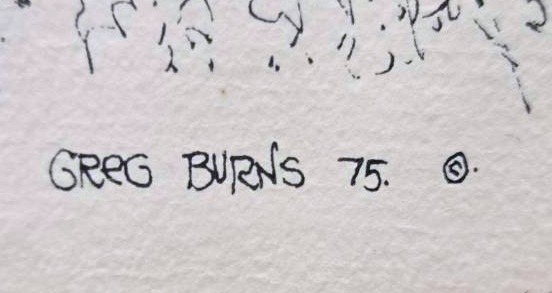 GREG BURNS 75. ©.